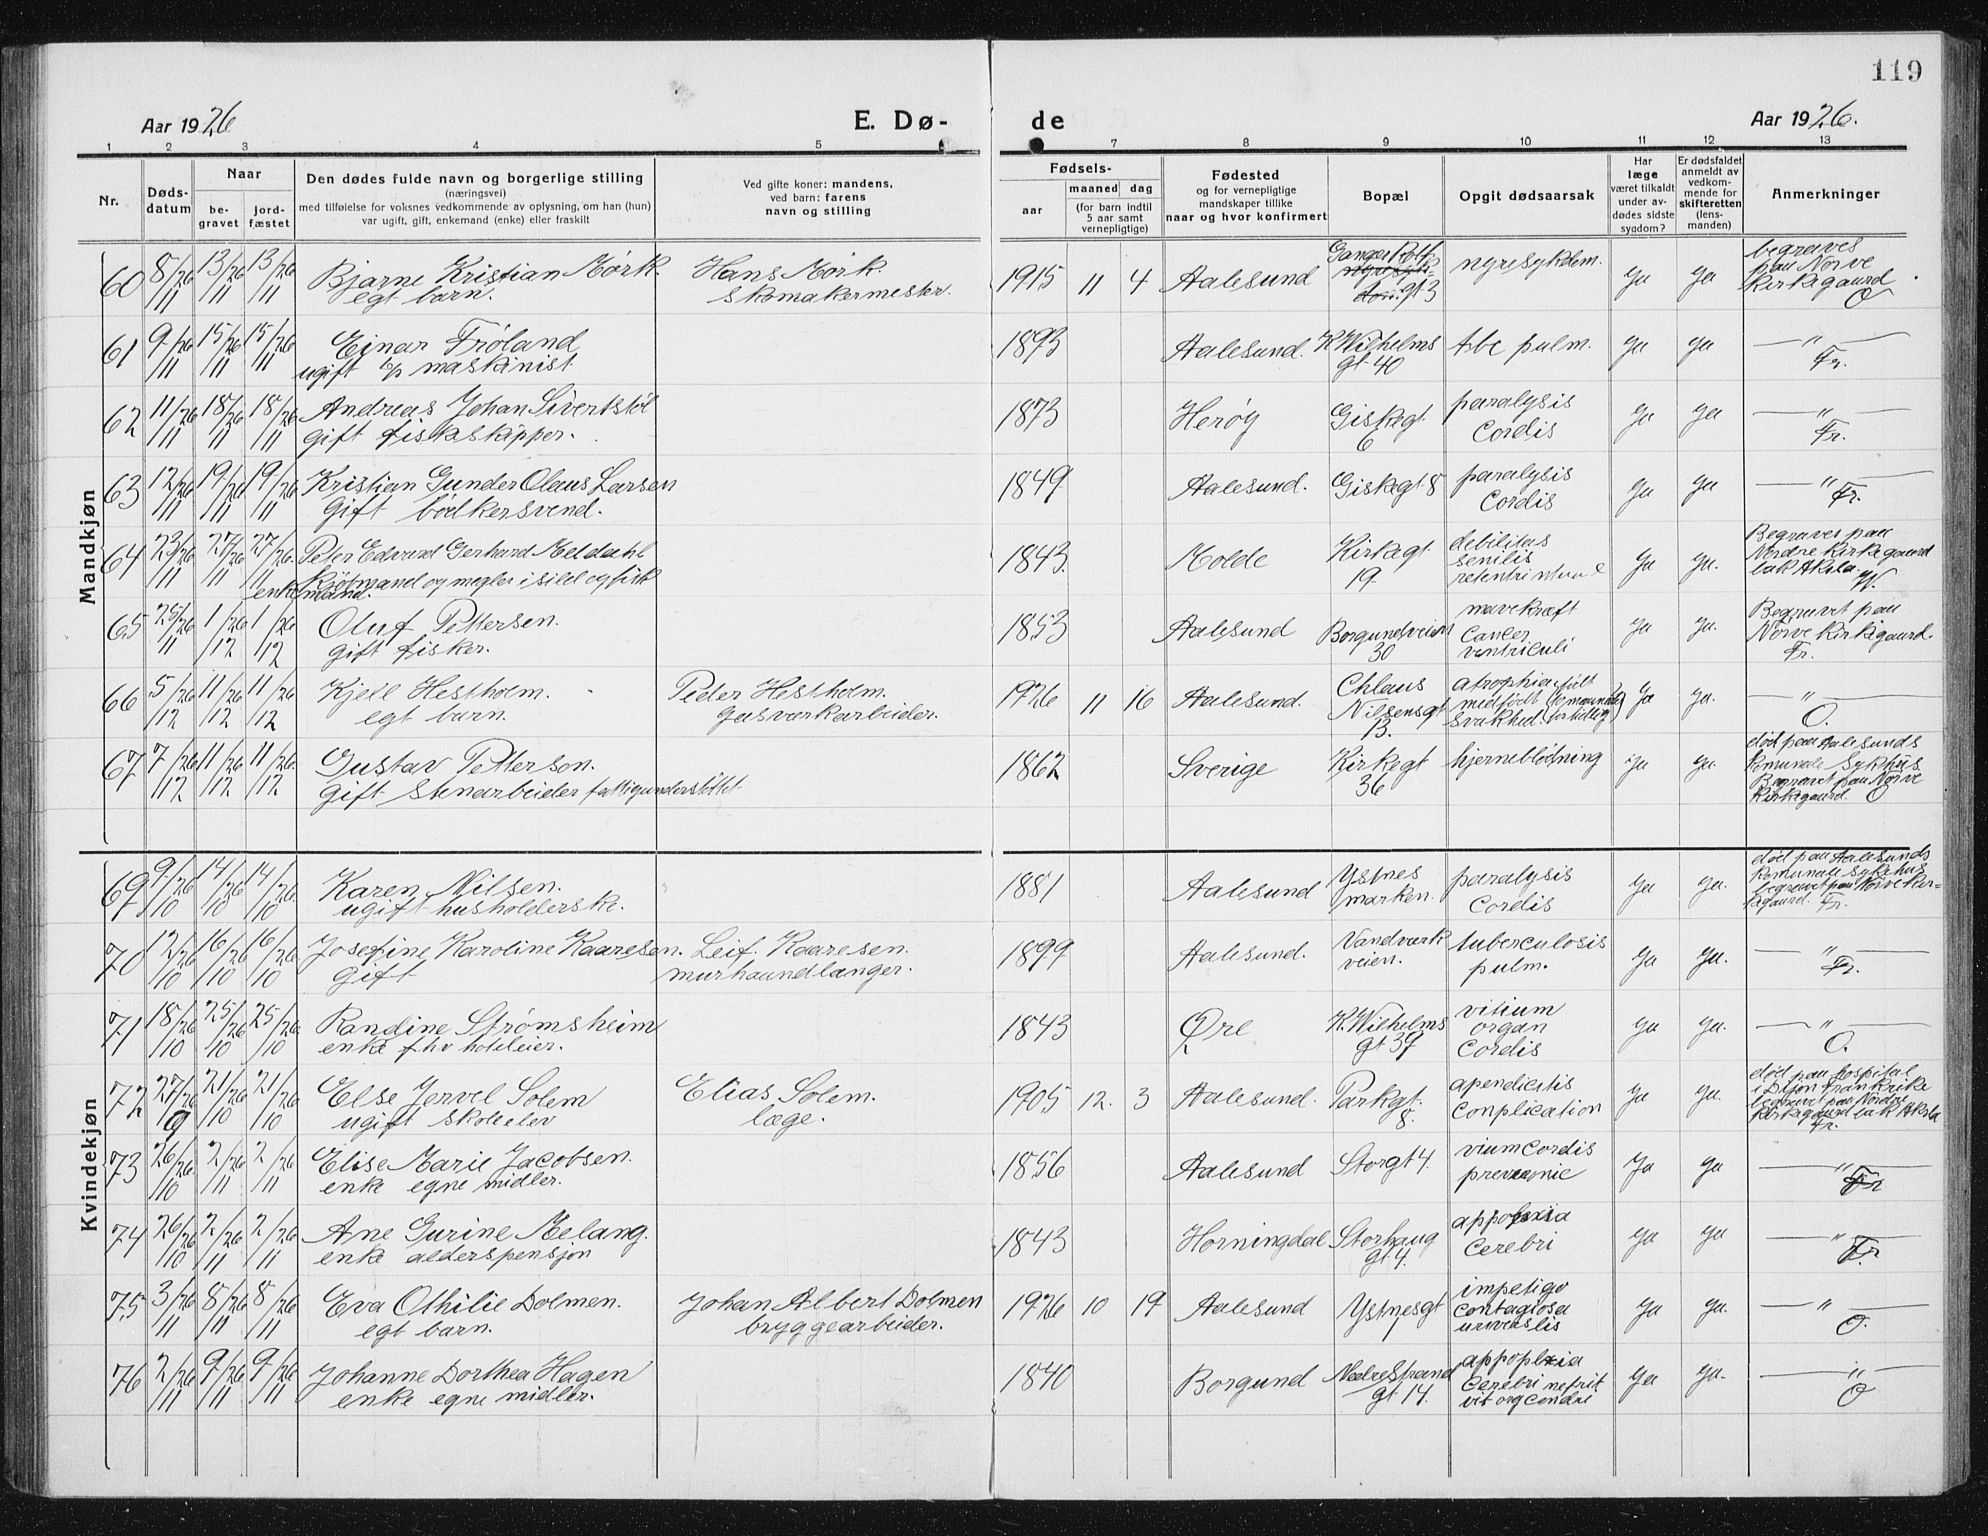 119
Aar 1926
E. Dø-
de
Aar 1926.
1 2 3 4 5 7 8 9 10 11 12 13
Nr.
Døds-
datum
Naar
be-
gravet
jord-
fæstet
Den dødes fulde navn og borgerlige stilling
(næringsvei)
med tilføielse for voksnes vedkommende av oplysning, om han (hun)
var ugift, gift, enkemand (enke) eller fraskilt
Ved gifte koner: mandens,
ved barn: farens
navn og stilling
Fødsels-
aar
maaned dag
(for barn indtil
5 aar samt
vernepligtige)
Fødested
og for vernepligtige
mandskaper tillike
naar og hvor konfirmert
Bopæl
Opgit dødsaarsak
Har
læge
været tilkaldt
under av-
dødes sidste
sygdom?
Er dødsfaldet
anmeldt av
vedkom-
mende for
skifteretten
(lens-
manden)
Anmerkninger
Mandkjøn
60 8/11 26 13/11 26 13/11 26 Bjarne Kristian Mørk. Hans Mørk. 1915 11 4 Aalesund nyresykdom. Ja Ja begraves
egt barn. skomakermester. gt 3 paa Nørve
Kirkegaard
O
61 9/11 26 15/11 26 15/11 26 Einar Frøland 1893 Aalesund. K Wilhelms tbc pulm. Ja Ja —"—
ugift maskinist. gt 40 Fr.
62 11/11 26 18/11 26 18/11 26 Andreas Johan Sivertstøl 1873 Herøy Giskegt. paralysis Ja Ja —"—
gift fiskeskipper. 6 Cordis Fr.
63 12/11 26 19/11 26 19/11 26 Kristian Gunder Olaus Larsen 1849 Aalesund. Giskegt 8 paralysis Ja Ja —"—
gift bødkersvend. Cordis Fr.
64 23/11 26 27/11 26 27/11 26 Peter Edvard Gerhard Meldahl 1843. Molde Kirkegt. debilitas Ja Ja. Begraves paa
Kjøbmand og megler i sild og fisk 19 senilis Nordre Kirkegaard
enkemand. bak Aksla.
65 25/11 26 1/12 26 1/12 26 Oluf Pettersen. 1853 Aalesund Borgundveien mavekræft Ja Ja. Begravet paa
gift fisker. 30 Cancer Nørve Kirkegaard.
ventriculi Fr.
66 5/12 26 11/12 26 11/12 26 Kjell Hestholm. Peder Hestholm. 1926 11 16 Aalesund. Chlaus atrophia Ja Ja. —"—
egt barn. gasværkarbeider. Nilsensgt medfødt O.
13. svakhed for tidlig
67 7/12 26 11/12 26 11/12 26 Gustav Petterson. 1862 Sverige Kirkegt hjerneblødning Ja Ja. død paa Aalesunds
gift stenarbeider fattigunderstøttet. 36 Komunale Sykhus
Begravet paa Nørve
Kirkegaard. O
Kvindekjøn
69 9/10 26 14/10 26 14/10 26 Karen Nilsen. 1881 Aalesund Ystnes paralysis Ja Ja. død paa Aalesunds
ugift husholderske. marken. Cordis Komunale Sykehus
begravet paa Nørve Kir-
kegaard. Fr.
70 12/10 26 16/10 26 16/10 26 Josefine Karoline Kaaresen. Leif. Kaaresen. 1899 Aalesund. Vandværk tuberculosis Ja Ja. —"—
gift murhaandlanger. veien. pulm. Fr.
71 18/10 26 25/10 26 25/10 26 Randine Strømsheim 1843 Øre K. Wilhelms vitium Ja Ja. —"—
enke fhv hoteleier. gt 39 organ O.
Cordis
72 27/9 26 21/10 26 21/10 26 Else Jorvel Solem Elias Solem. 1905 12. 3 Aalesund. Parkgt. apendicitis Ja Ja. død paa hospital
ugift skoleelev læge. 8. Conplication i Dijon Frankrike
begravet paa Nordre
Kirkegaard bak Aksla
Fr.
73 26/10 26 2/11 26 2/11 26 Elise Marie Jacobsen. 1856 Aalesund Storgt 4. vium Cordis Ja Ja —"—
enke egne midler. Fr
74 26/10 26 2/11 26 2/11 26 Ane Gurine Melang. 1843 Horningdal Storhaug appoplexia Ja Ja —"—
enke alderspensjon gt 4. Cerebri Fr
75 3/11 26 8/11 26 8/11 26 Eva Othilie Dolmen. Johan Albert Dolmen 1926 10 19 Aalesund Ystnesgt impetigo Ja Ja. —"—
egt barn. bryggearbeider. 1 contagiosa O.
76 2/11 26 9/11 26 9/11 26 Johanne Dorthea Hagen 1840 Borgund Nedre Strand appoplexia Ja Ja. —"—
enke egne midler. gt 14. Cerebri nefrit O